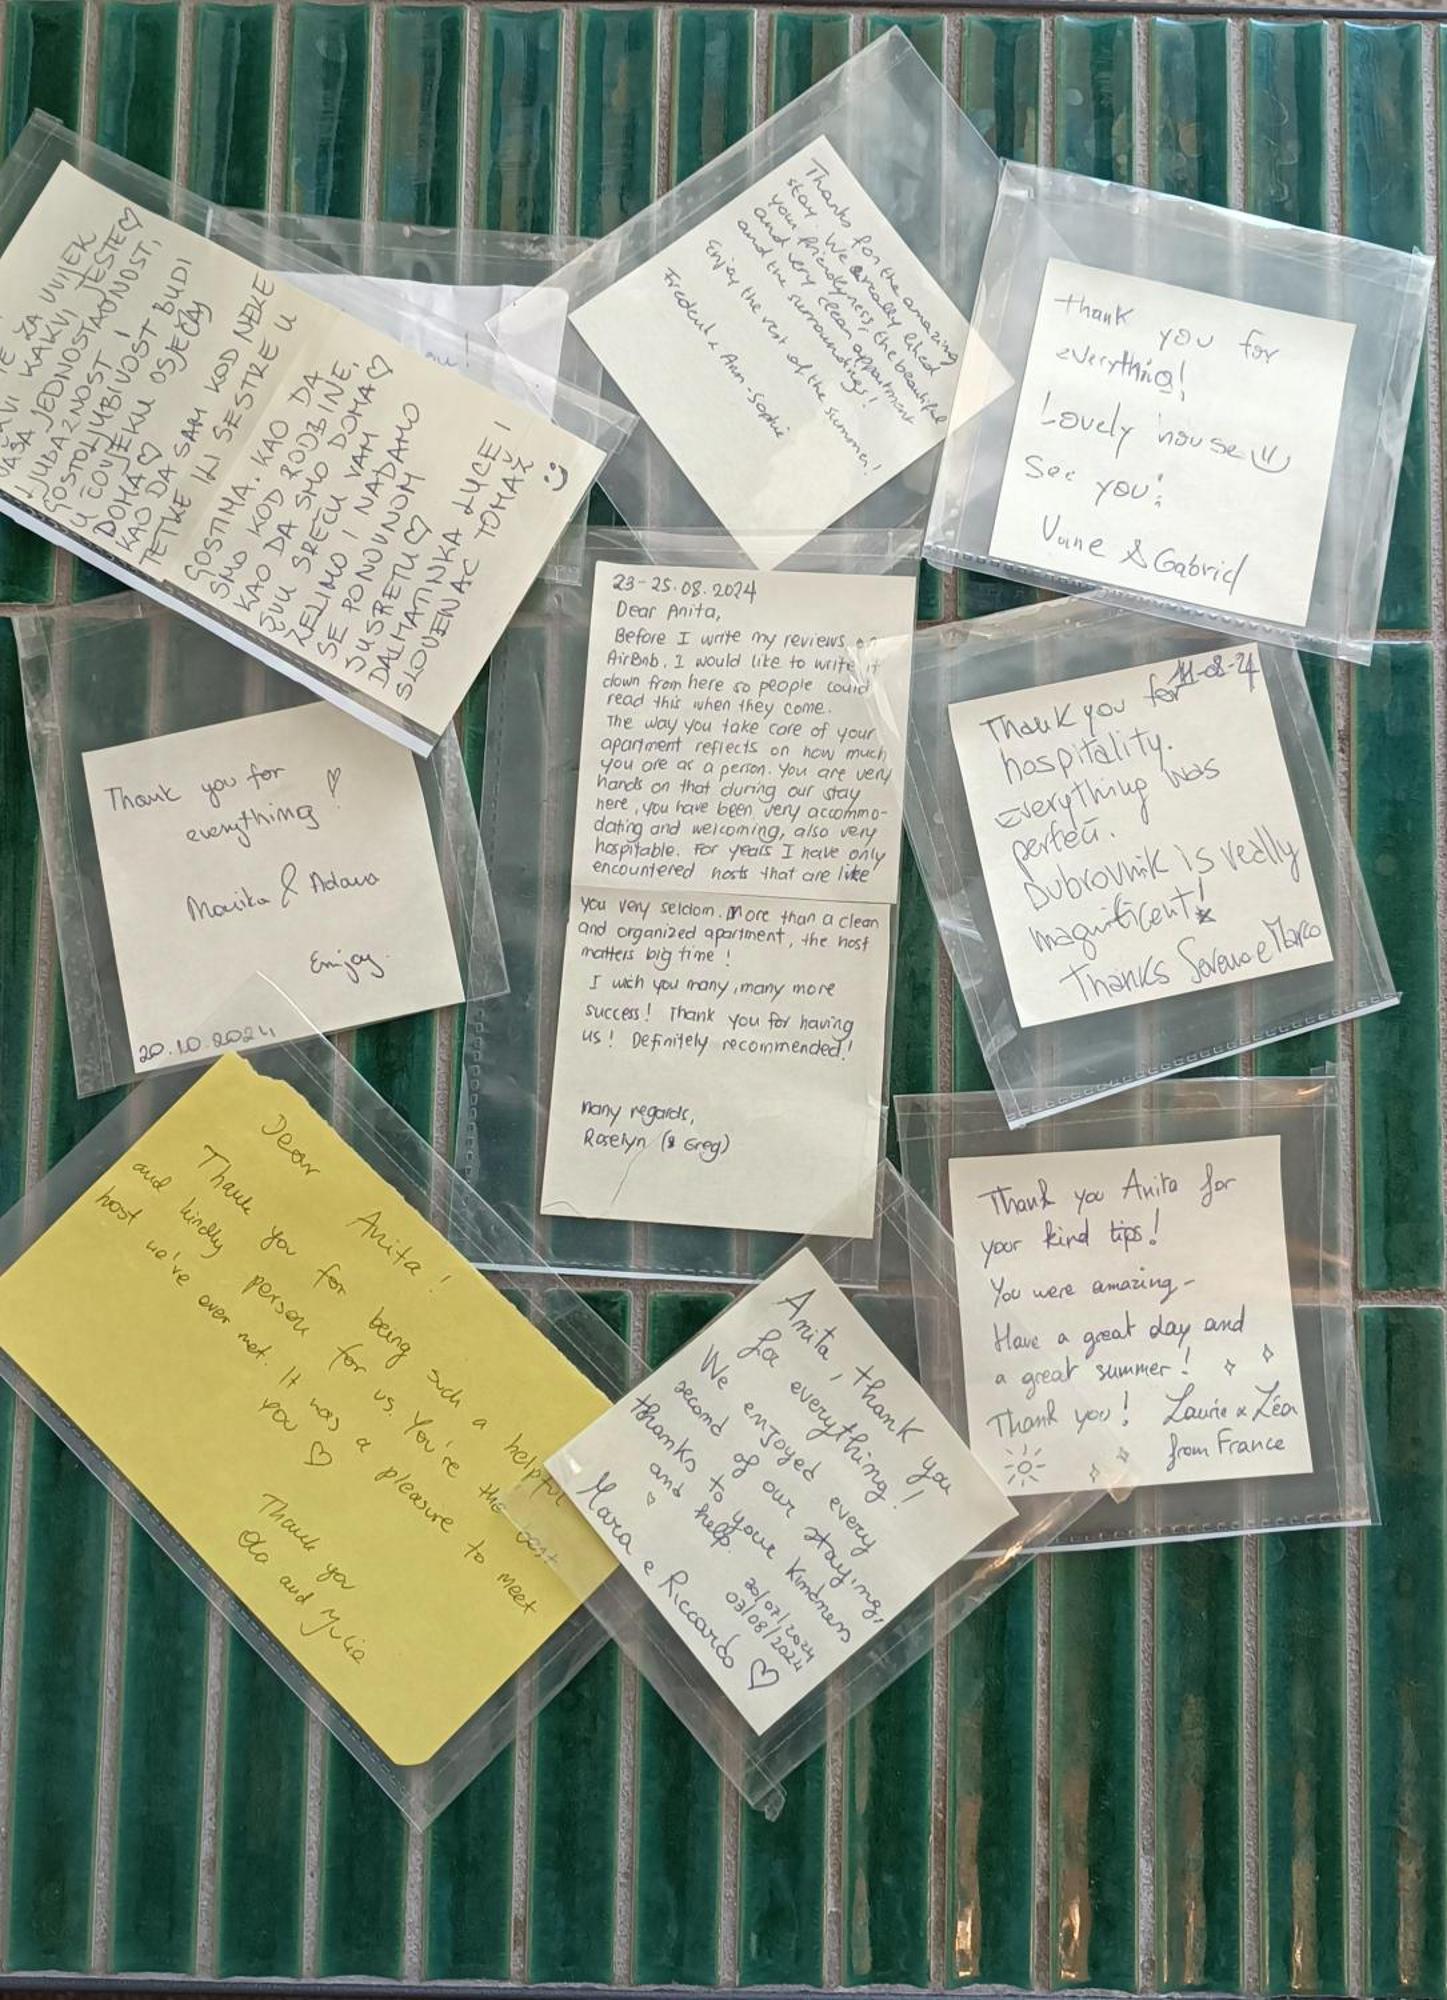 ZA UVIJEK
KAKVI JESTE♡
VAŠA JEDNOSTAVNOST,
LJUBAZNOST I
GOSTOLJUBIVOST BUDI
U ČOVJEKU OSJEČAJ
DOMA♡
KAO DA SAM KOD NEKE
TETKE ILI SESTRE U
GOSTIMA. KAO DA
SMO KOD RODBINE,
KAO DA SMO DOMA♡
SVU SREČU VAM
ŽELIMO I NADAMO
SE PONOVNOM
SUSRETU♡
DALMATINKA LUCE I
SLOVENAC TOMAŽ
Thanks for the amazing
stay. We really liked
your friendlyness, the beautiful
and very clean appartment
and the surroundings!
Enjoy the rest of the summer!
& Ann-Sophie
Thank you for
everything!
Lovely house
See you!
& Gabriel
23-25.08.2024
Dear Anita,
Before I write my reviews on
AirBnb. I would like to write it
down from here so people could
read this when they come.
The way you take care of your
apartment reflects on how much
you are as a person. You are very
hands on that during our stay
here, you have been very accommo-
dating and welcoming, also very
hospitable. For years I have only
encountered hosts that are like
you very seldom. More than a clean
and organized apartment, the host
matters big time!
I wish you many, many more
success! Thank you for having
us! Definitely recommended!
many regards,
Roselyn (& Greg)
Thank you for
everything!
&
Enjoy.
20.10.2024
-08-24
Thank you for
hospitality.
Everything was
perfect.
Dubrovnik is really
magnificent!
Thanks Serena e Marco
Dear Anita!
Thank you for being such a helpful
and kindly person for us. You're the best
host we've ever met. It was a pleasure to meet
you ♡
Thank you
and Julia
Anita, thank you
for everything!
We enjoyed every
second of our staying,
thanks to your kindness
and help.
20/07/2024
03/08/2024
Mara e Riccardo ♡
Thank you Anita for
your kind tips!
You were amazing -
Have a great day and
a great summer!
Thank you! Laurie & Léa
from France